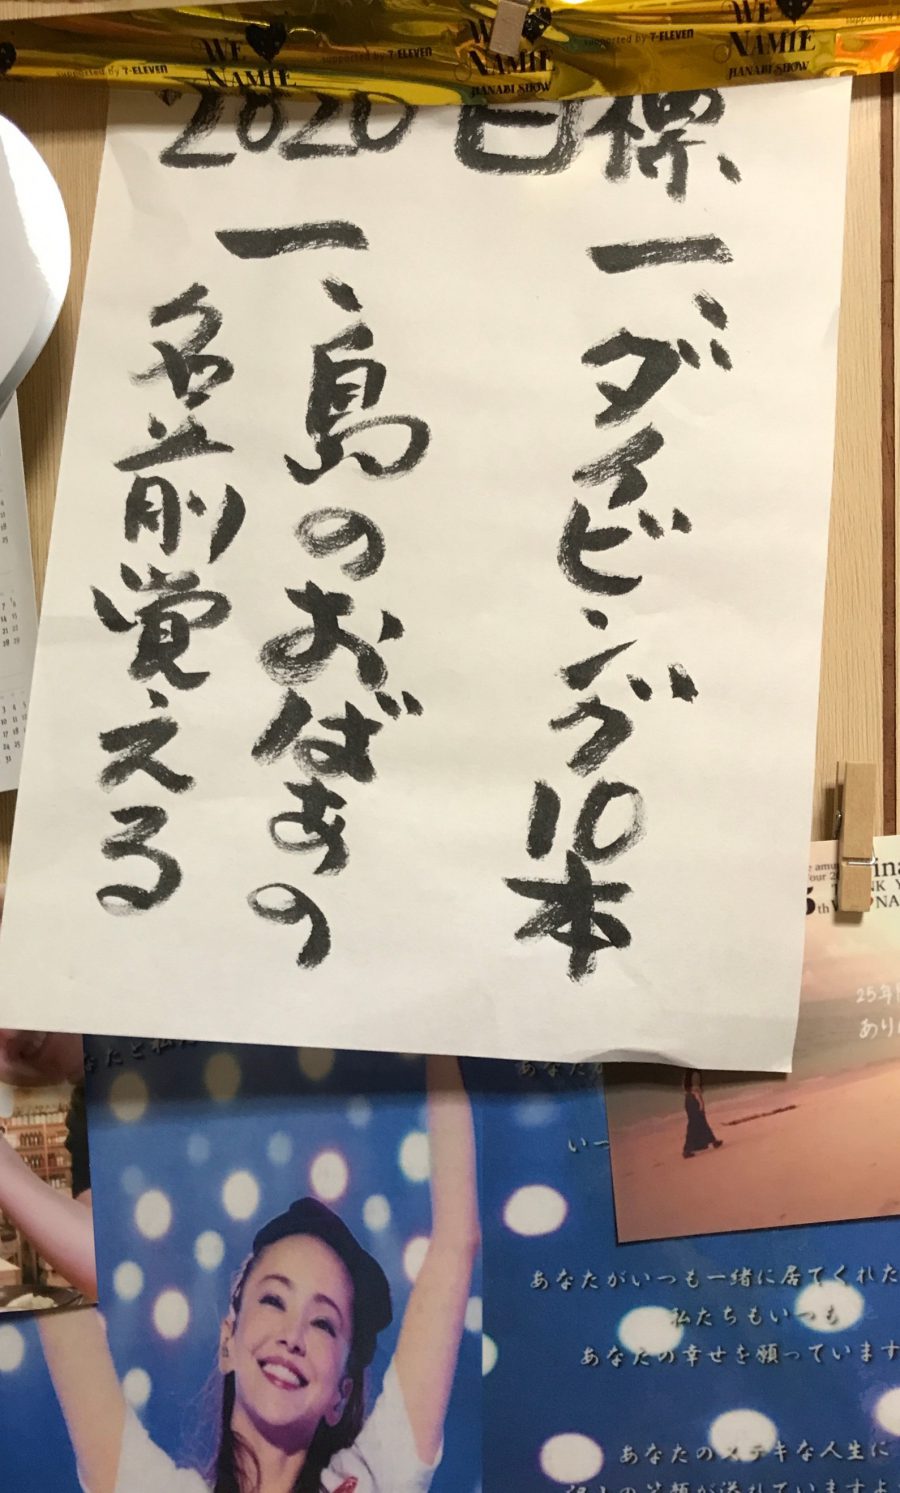 WE NAMIE
supported by 7-ELEVEN
WE NAMIE HANABI SHOW
supported by 7-ELEVEN
WE NAMIE HANABI SHOW
2020 目標、
一、ダイビング10本
一、島のおばあの
名前覚える
25年
あり
あなたがいつも一緒に居てくれた
私たちもいつも
あなたの幸せを願っています
あなたのステキな人生に